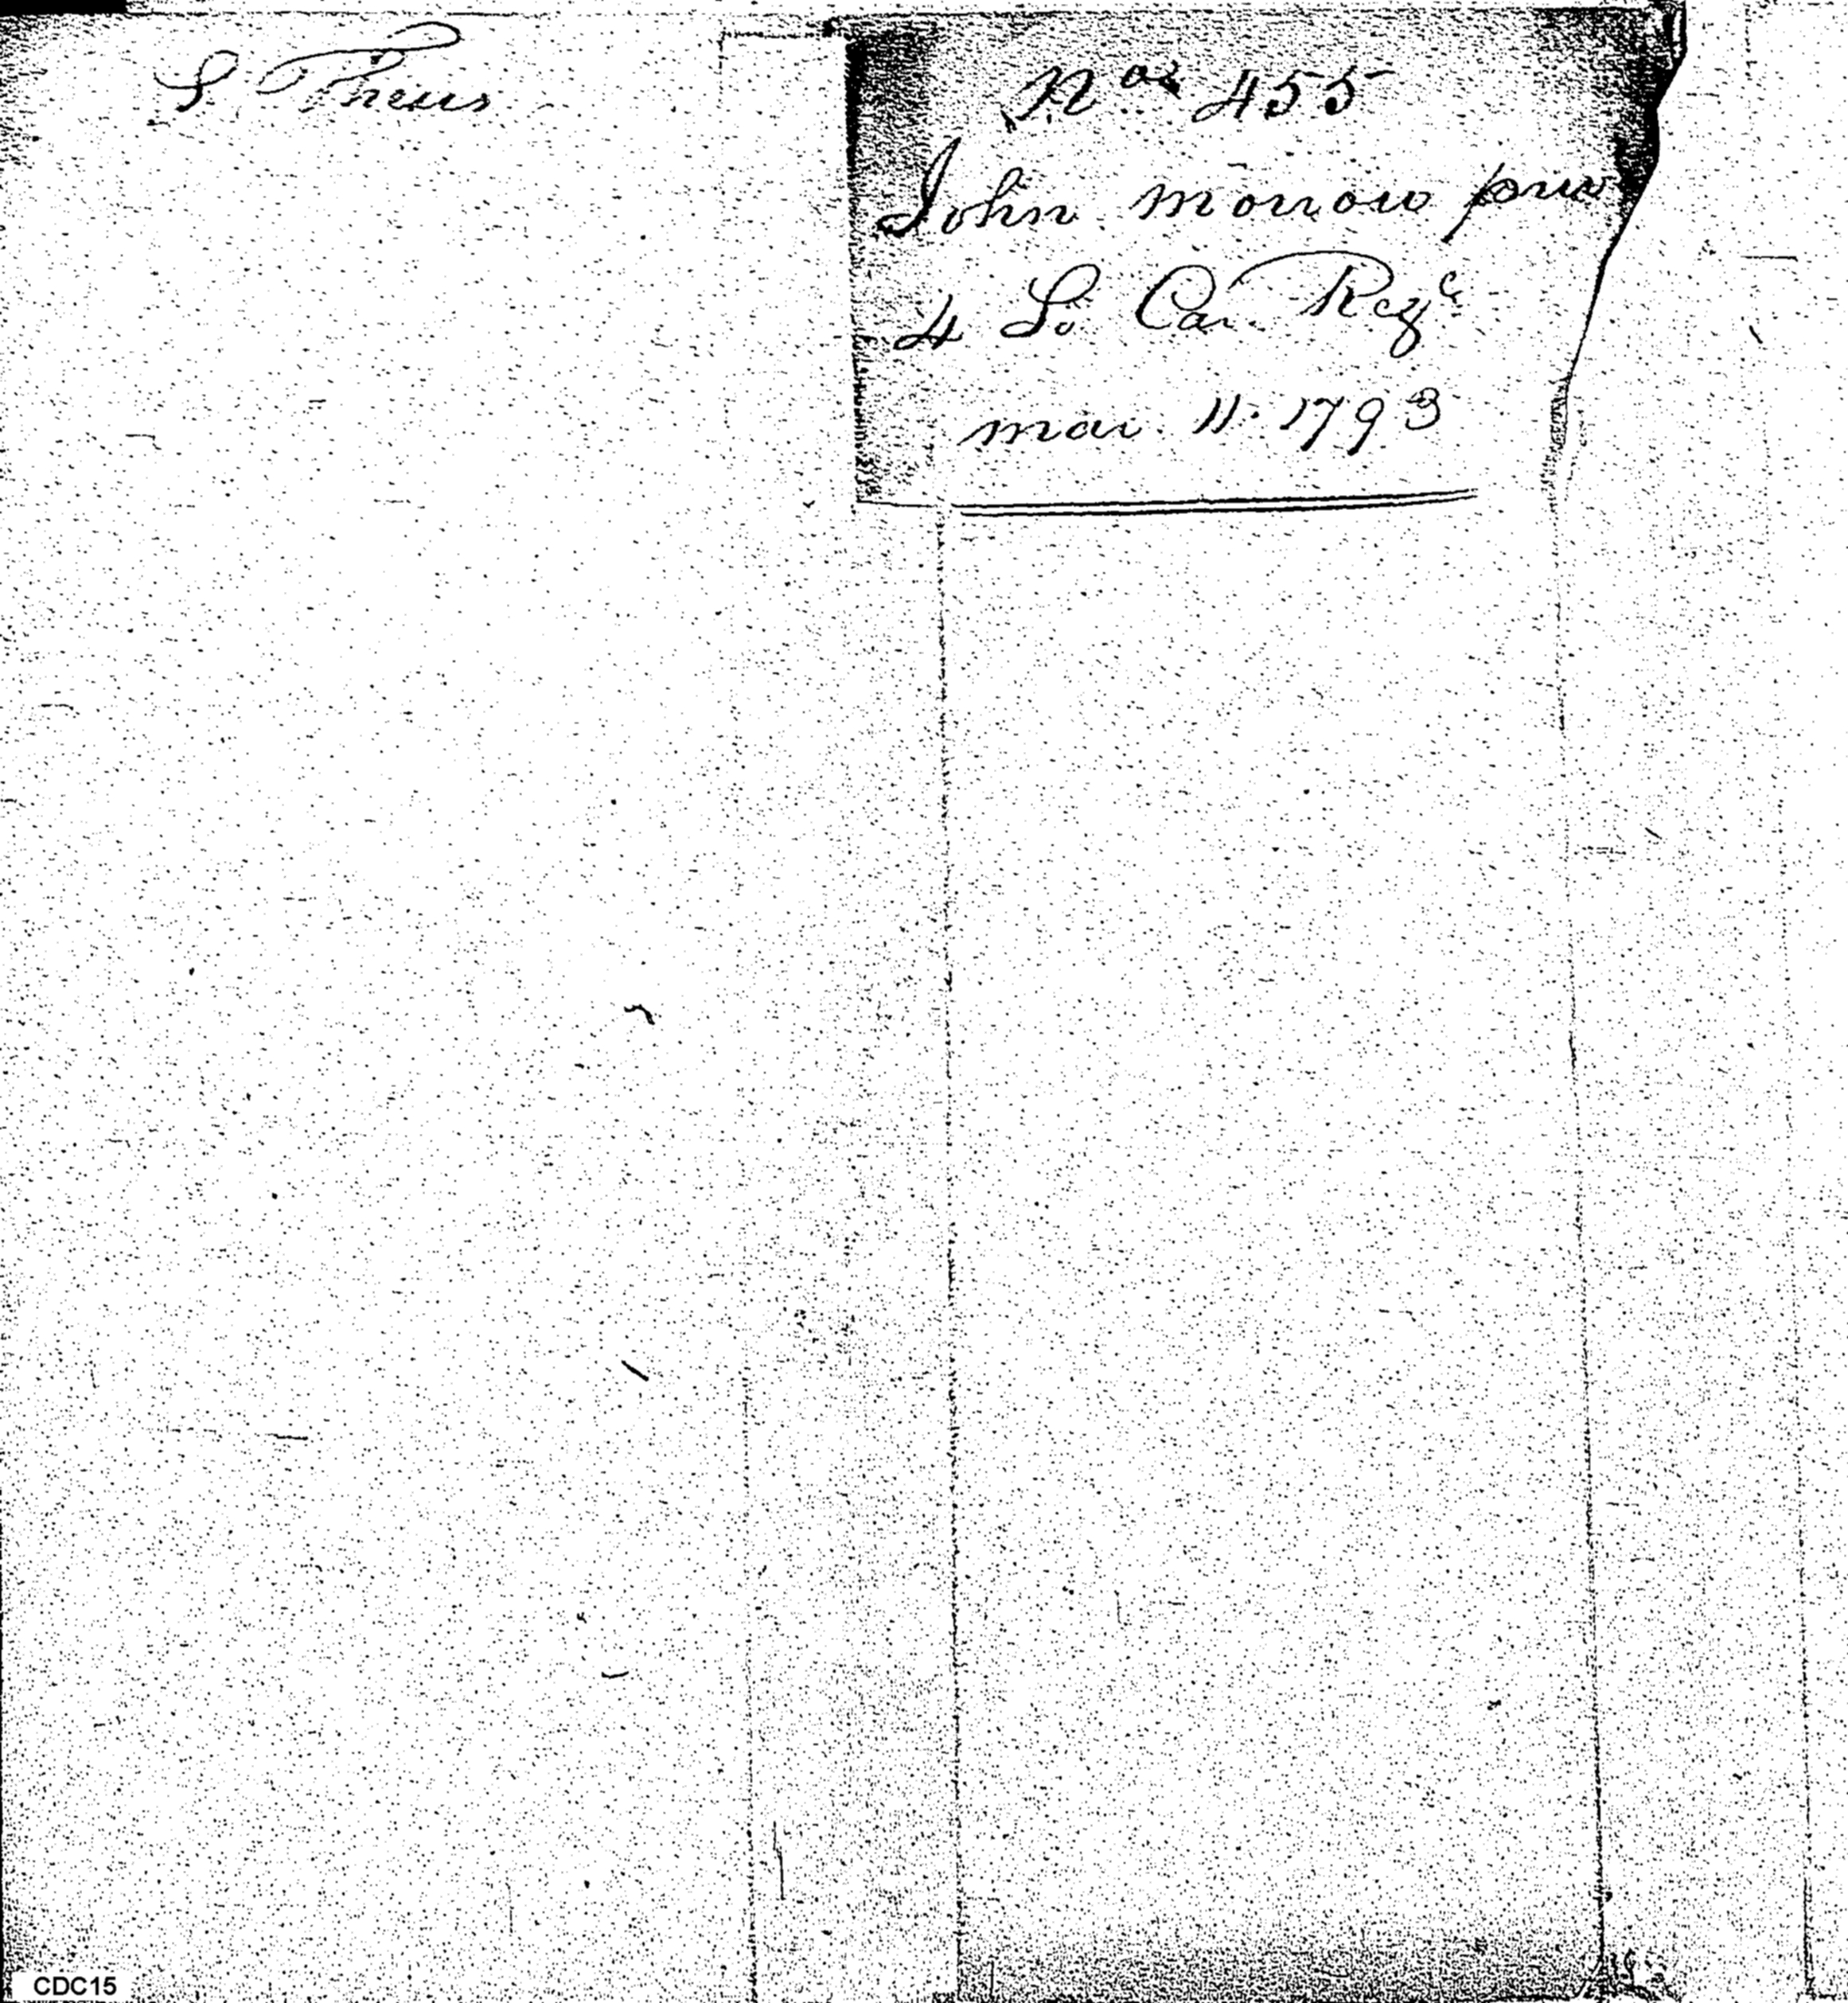 S. Theus
Nos 455
John Morrow priv
4 So Car. Regt
Mar. 11. 1793
CDC15